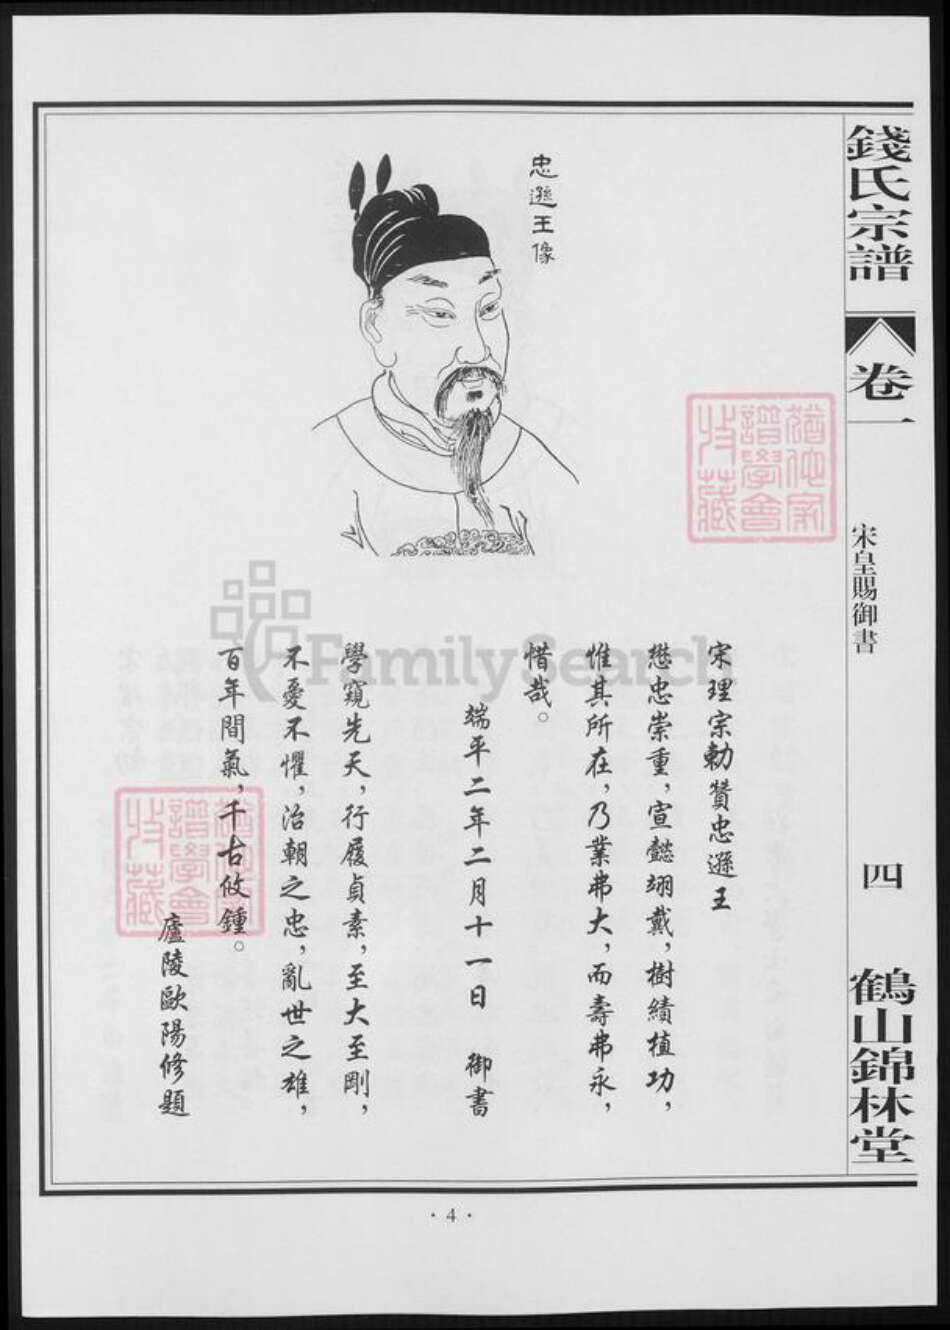 錢氏宗譜
卷一
宋皇賜御書
四
鶴山錦林堂
忠遜王像
宋理宗勅贊忠遜王
懋忠崇重，宣懿翊戴，樹績植功，
惟其所在，乃業弗大，而壽弗永，
惜哉。
端平二年二月十一日 御書
學窺先天，行履貞素，至大至剛，
不憂不懼，治朝之忠，亂世之雄，
百年間氣，千古攸鍾。
廬陵歐陽修題
猶他家
譜學會
收藏
猶他家
譜學會
收藏
FamilySearch
· 4 ·